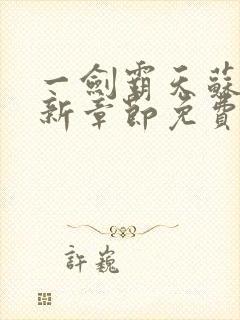 一劍霸天蘇
新章節免費
許巍